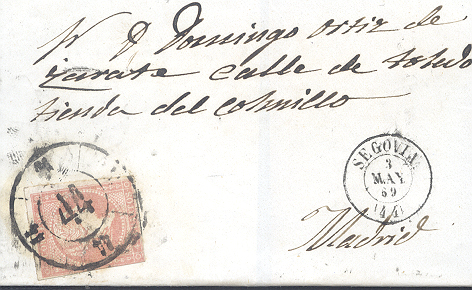 D Domingo ortiz de
zarate calle de toledo
tienda del colmillo
SEGOVIA
3
MAY
69
(44)
44
Madrid